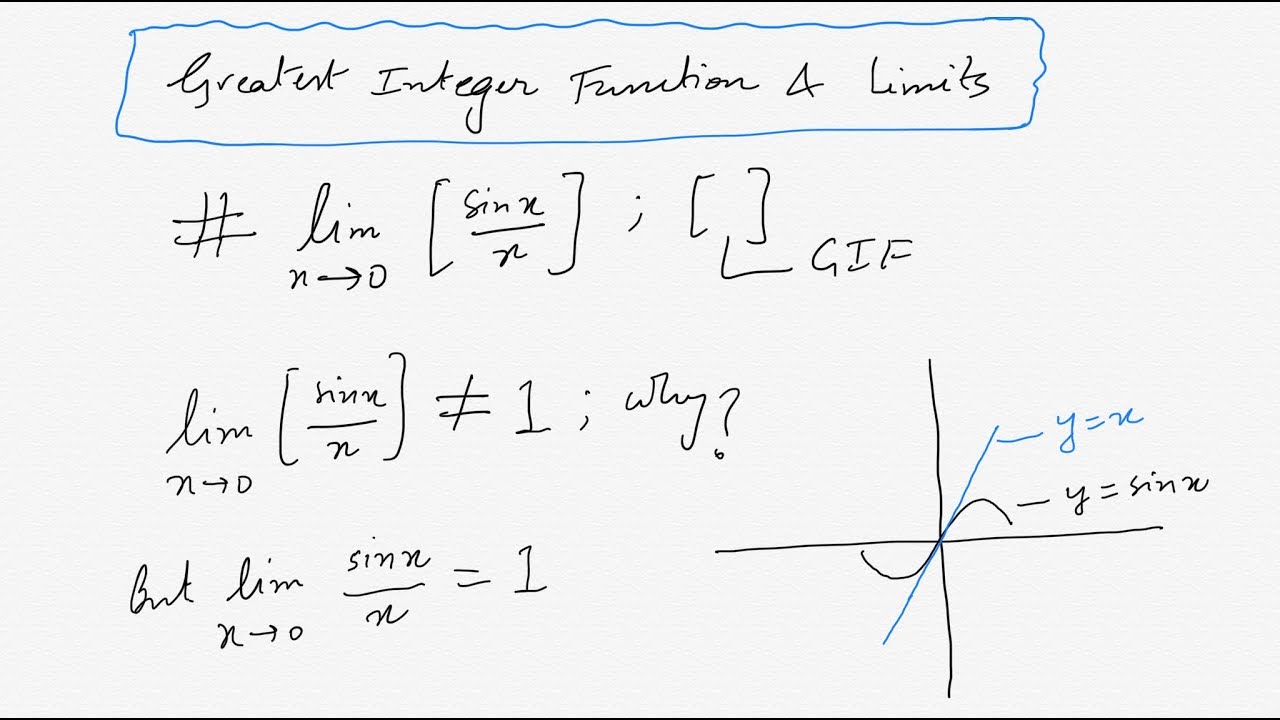 Greatest Integer Function & Limits
# lim x→0 [sinx/x] ; [ ] GIF
lim x→0 [sinx/x] ≠ 1 ; why?
y=x
y=sinx
But lim x→0 sinx/x = 1